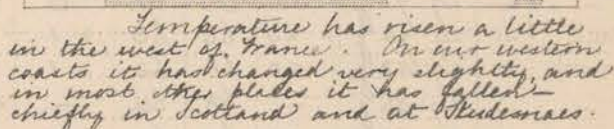 Temperature has risen a little
in the west of France. On our western
coasts it has changed very slightly, and
in most other places it has fallen –
chiefly in Scotland and at Skudesnaes.